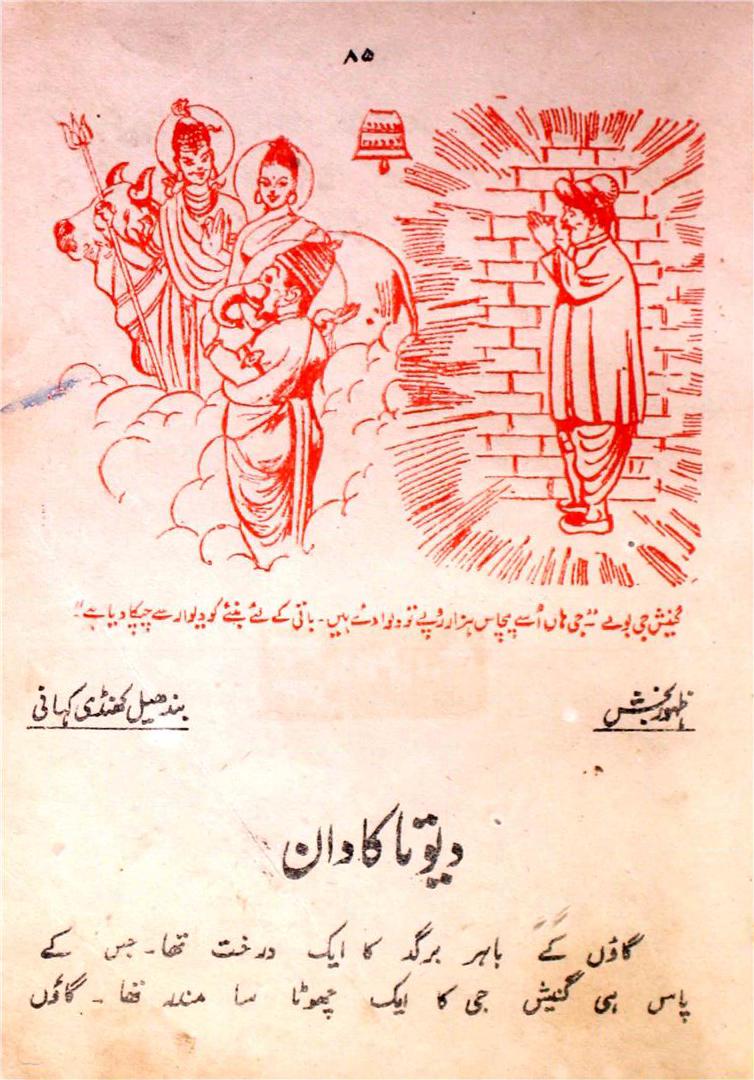 ۸۵
گنیش جی بولے "جی ہاں اُسے پچاس ہزار روپے تو دلوا دئے ہیں۔ باقی کے لئے بنئے کو دیوار سے چپکا دیا ہے"
ظہور بخش
بندھیل کھنڈی کہانی
دیوتا کا دان
گاؤں کے باہر برگد کا ایک درخت تھا۔ جس کے
پاس ہی گنیش جی کا ایک چھوٹا سا مندر تھا۔ گاؤں